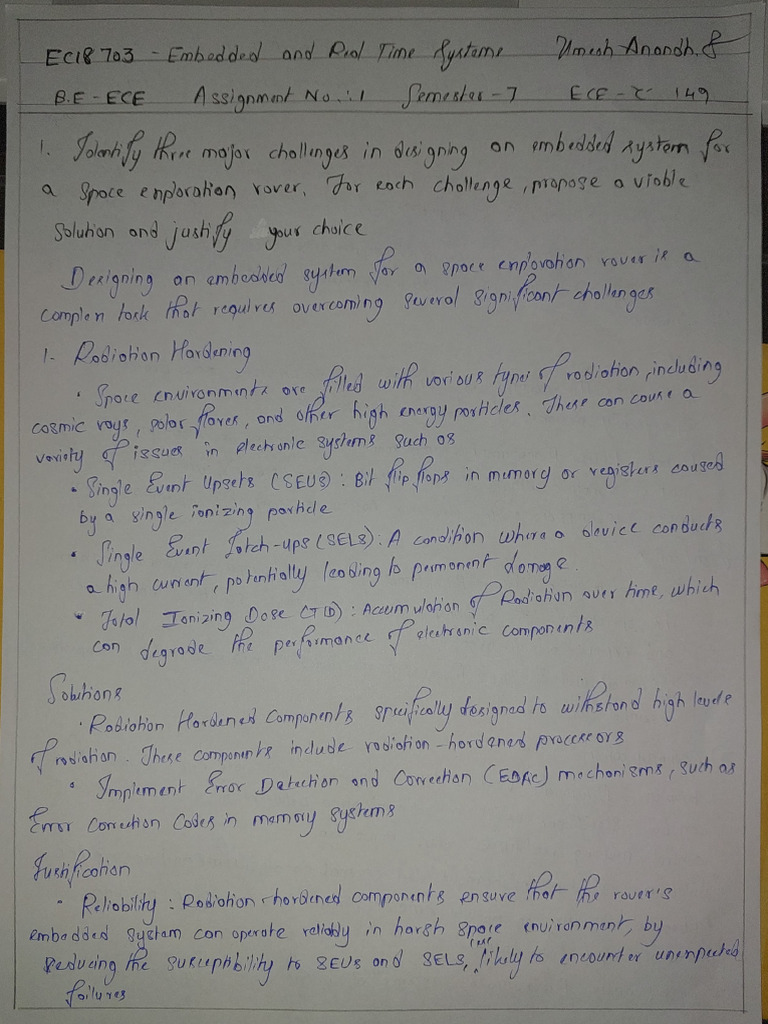 EC18703 - Embedded and Real Time Systems Umesh Anandh. S
B.E - ECE Assignment No.:1 Semester - 7 ECE - C 149
1. Identify three major challenges in designing an embedded system for
a space exploration rover. For each challenge, propose a viable
solution and justify your choice
Designing an embedded system for a space exploration rover is a
complex task that requires overcoming several significant challenges
1. Radiation Hardening
• Space environments are filled with various types of radiation, including
cosmic rays, solar flares, and other high energy particles. These can cause a
variety of issues in electronic systems such as
• Single Event Upsets (SEUS): Bit flip flops in memory or registers caused
by a single ionizing particle
• Single Event Latch-ups (SELS): A condition where a device conducts
a high current, potentially leading to permanent damage.
• Total Ionizing Dose (TID): Accumulation of Radiation over time, which
can degrade the performance of electronic components
Solutions
• Radiation Hardened Components specifically designed to withstand high levels
of radiation. These components include radiation-hardened processors
• Implement Error Detection and Correction (EDAC) mechanisms, such as
Error Correction Codes in memory systems
Justification
• Reliability: Radiation-hardened components ensure that the rover's
embedded system can operate reliably in harsh space environment, by
reducing the susceptibility to SEUs and SELS, less likely to encounter unexpected
failures